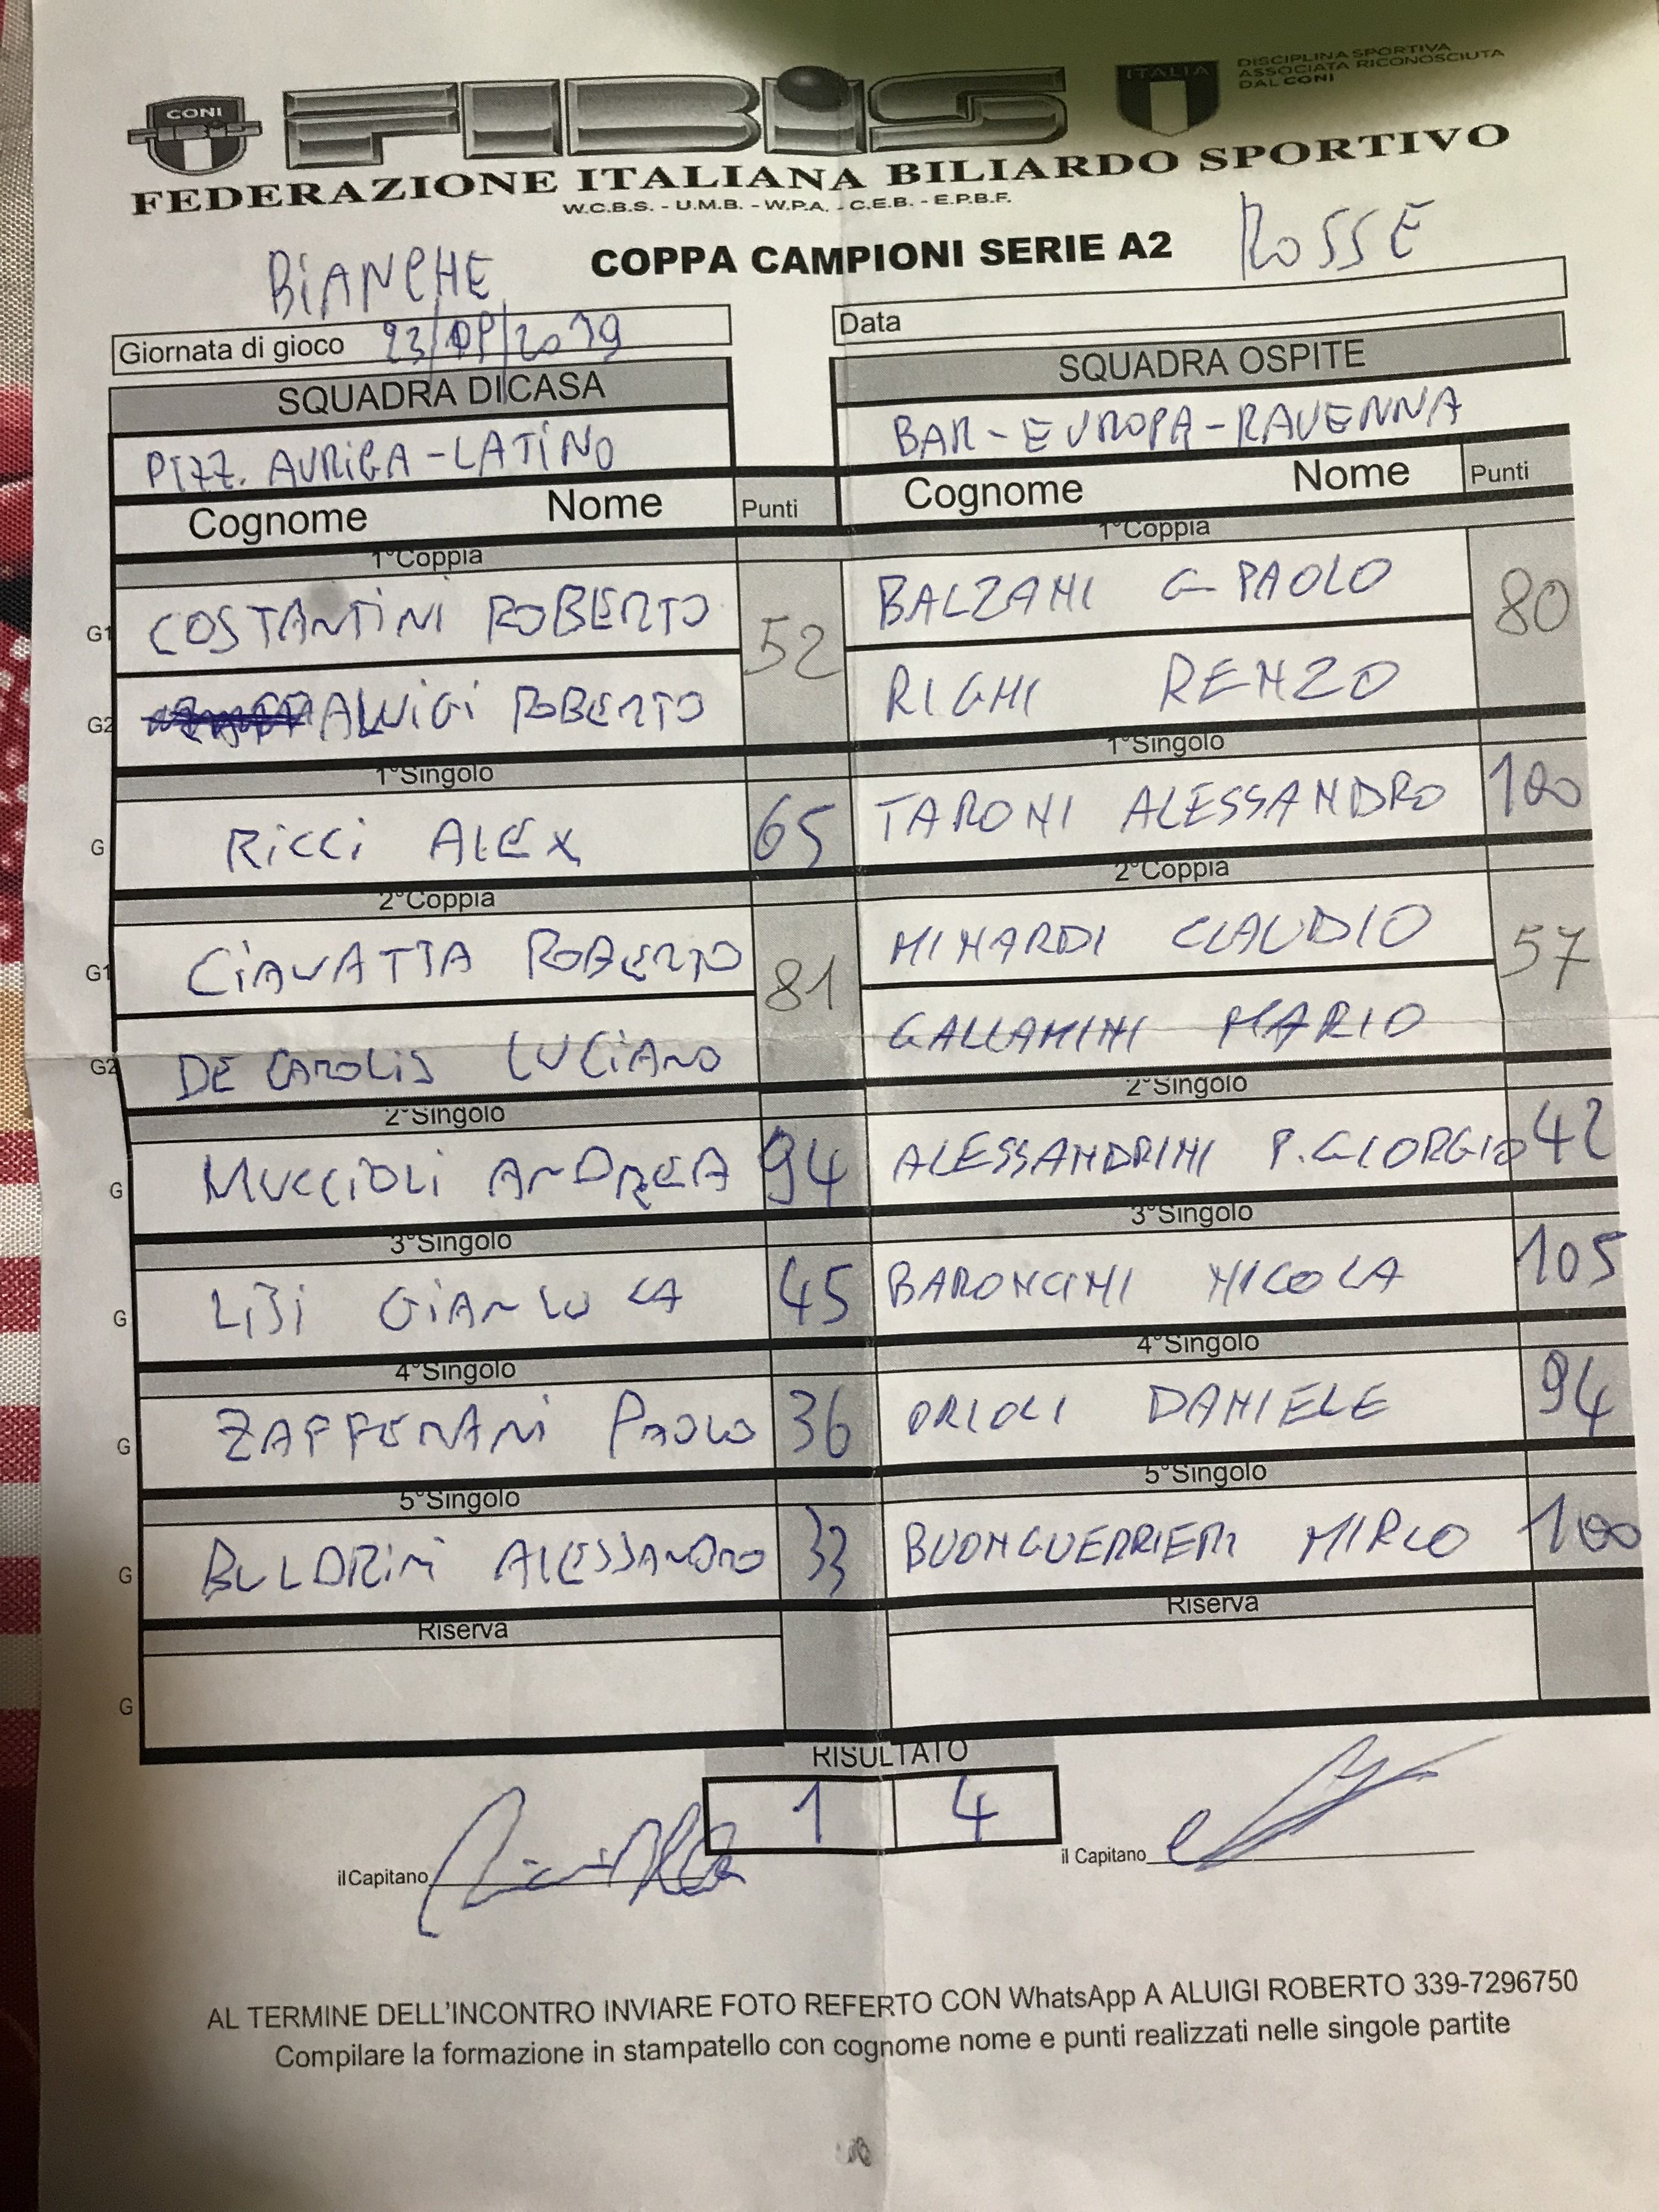 CONI
FIBiS
FIBiS
ITALIA
DISCIPLINA SPORTIVA
ASSOCIATA RICONOSCIUTA
DAL CONI
FEDERAZIONE ITALIANA BILIARDO SPORTIVO
W.C.B.S. - U.M.B. - W.P.A. - C.E.B. - E.P.B.F.
BIANCHE COPPA CAMPIONI SERIE A2 ROSSE
Giornata di gioco 23/ /2019 Data
SQUADRA DI CASA SQUADRA OSPITE
PIZZ. AURIGA - LATINO BAR - EUROPA - RAVENNA
Cognome Nome Punti Cognome Nome Punti
1°Coppia 1°Coppia
G1 COSTANTINI ROBERTO 52 BALZANI G PAOLO 80
G2 ALUIGI ROBERTO RIGHI RENZO
1°Singolo 1°Singolo
G RICCI ALEX 65 TARONI ALESSANDRO 100
2°Coppia 2°Coppia
G1 CIAVATTA ROBERTO 81 MINARDI CLAUDIO 57
G2 DE CAROLIS LUCIANO GALLAMINI MARIO
2°Singolo 2°Singolo
G MUCCIOLI ANDREA 94 ALESSANDRINI P. GIORGIO 42
3°Singolo 3°Singolo
G LISI GIANLUCA 45 BARONCINI NICOLA 105
4°Singolo 4°Singolo
G PAOLO 36 ORIOLI DANIELE 94
5°Singolo 5°Singolo
G BULDRINI ALESSANDRO 33 BUONGUERRIERI MIRCO 100
Riserva Riserva
G
RISULTATO
1 4
il Capitano il Capitano
AL TERMINE DELL'INCONTRO INVIARE FOTO REFERTO CON WhatsApp A ALUIGI ROBERTO 339-7296750
Compilare la formazione in stampatello con cognome nome e punti realizzati nelle singole partite